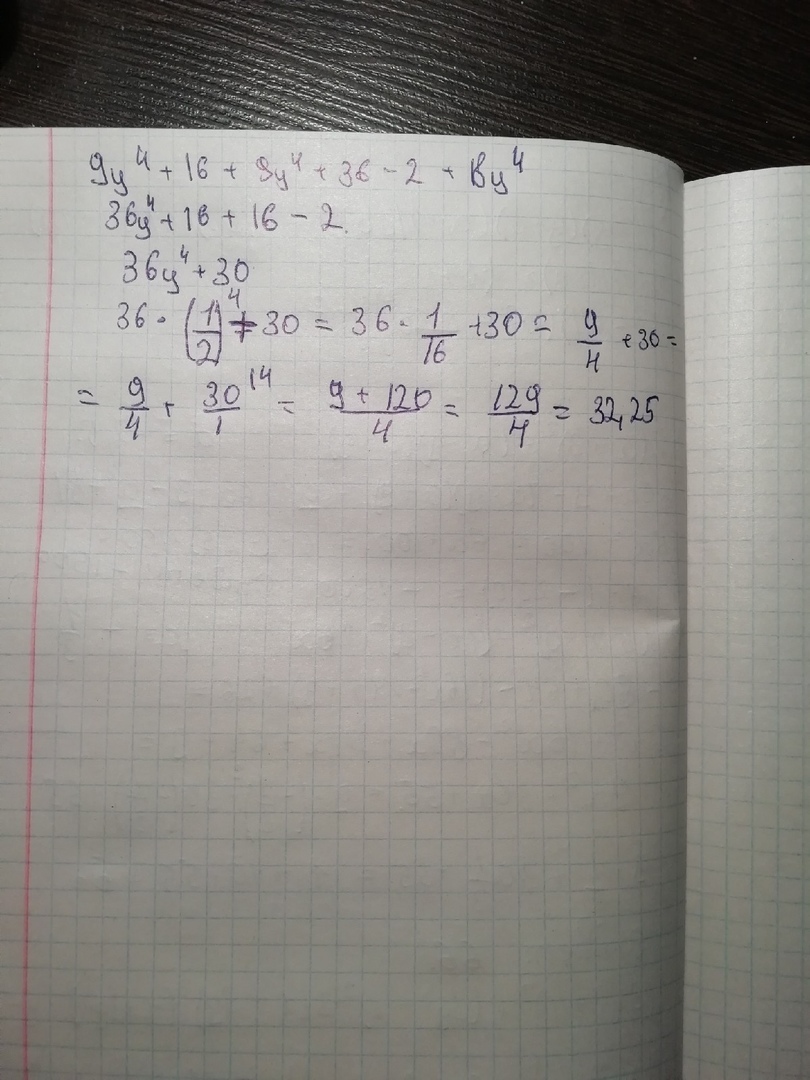 9y⁴ + 16 + 9y⁴ + 36 - 2 + 18y⁴
36y⁴ + 16 + 16 - 2.
36y⁴ + 30
36 · (1/2)⁴ + 30 = 36 · 1/16 + 30 = 9/4 + 30 =
= 9/4 + 30/1 ^(/4) = (9 + 120)/4 = 129/4 = 32,25